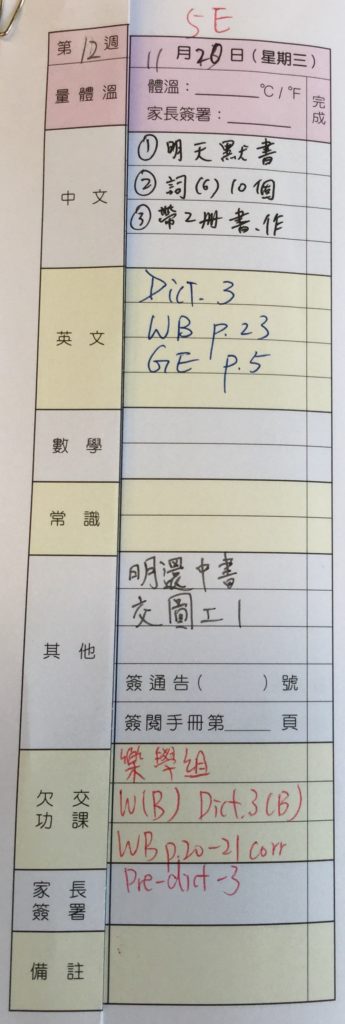 5E
第12週 11月20日(星期三)
量體溫 體溫：______℃/℉ 完成
家長簽署：______
中文 ①明天默書
②詞(6)10個
③帶2冊書、作
英文 Dict. 3
WB p.23
GE p.5
數學
常識
其他 明還中書
交圖工1
簽通告( )號
簽閱手冊第____頁
欠交功課 樂學組
W(B) Dict.3(B)
WB p.20-21 corr
Pre-dict-3
家長簽署
備註